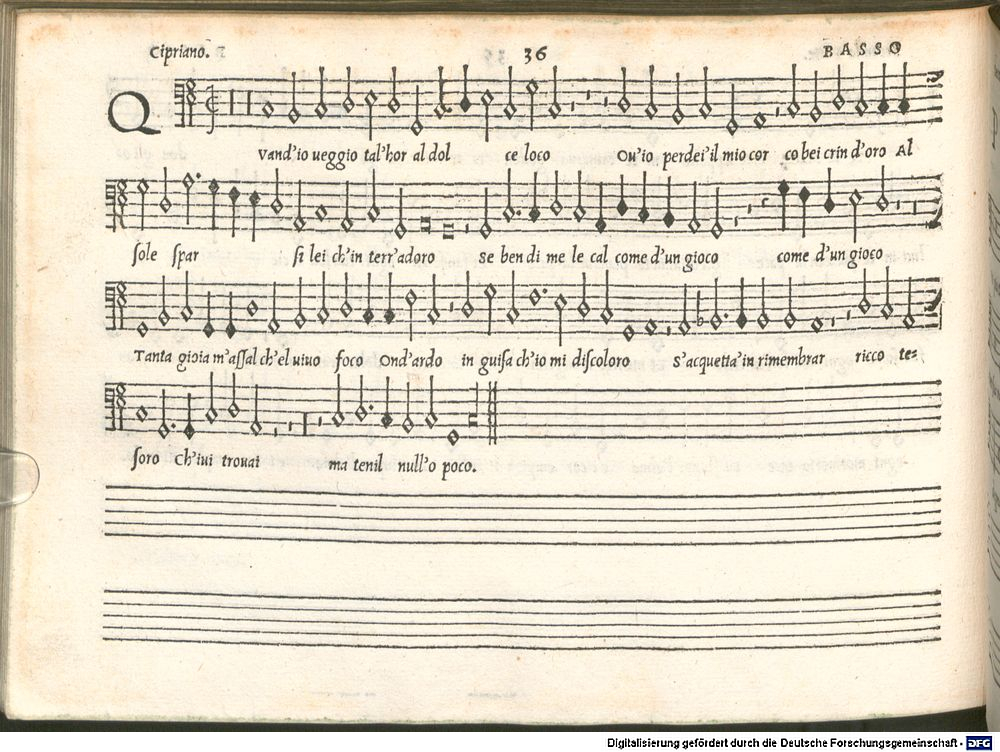 Cipriano. 36 BASSO
Qvand'io ueggio tal'hor al dol ce loco Ou'io perdei'il mio cor co bei crin d'oro Al
ſole ſpar ſi lei ch'in terr'adoro se ben di me le cal come d'un gioco come d'un gioco
Tanta gioia m'aſſal ch'el uiuo foco Ond'ardo in guiſa ch'io mi diſcoloro S'acquetta'in rimembrar ricco te=
ſoro Ch'iui trouai ma tenil null'o poco.
Digitalisierung gefördert durch die Deutsche Forschungsgemeinschaft - DFG